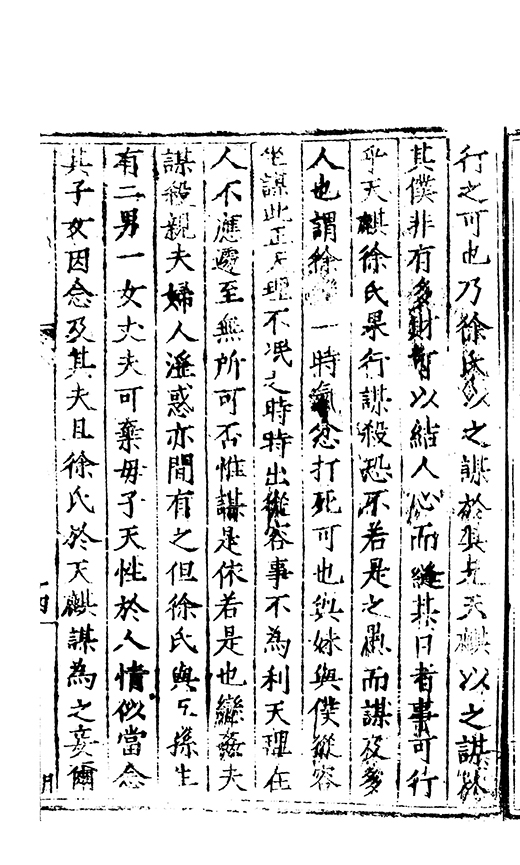 行之可也乃徐氏以之謀於其兄天麒以之謀於
其僕非有多財可以結人心而縫其口者事可行
乎天麒徐氏果行謀殺恐不若是之愚而謀及多
人也謂徐一時氣忿打死可也與妹與僕從容
坐謀此正天理不泯之時特出從容事不為利天理在
人不應遽至無所可否惟謀是依若是也繼姦夫
謀殺親夫婦人淫惑亦間有之但徐氏與孫生
有二男一女丈夫可棄母子天性於人情似當念
其子女因念及其夫且徐氏於天麒謀為之妾爾